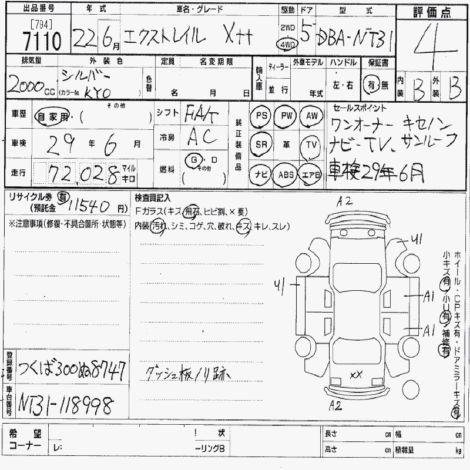 出品番号 [794] 7110
年式 22年 6月
車名・グレード エクストレイル Xtt
駆動 2WD 4WD
ドア 5
型式 DBA-NT31
評価点 4
排気量 2000cc
外装色 シルバー (カラーNo. KY0 )
色替
定員 名
名変期限 月 日
輸入車 ディーラー 並行
外車モデル 年
ハンドル 左・右
保証書 有 無
内装 B 外装 B
車歴 自家用 その他
シフト FA/T
装備品 PS PW AW
セールスポイント
ワンオーナー キセノン
車検 29年 6月
冷房 AC
SR 革 TV
ナビ・TV、サンルーフ
走行 72,028 マイル キロ
燃料 G D その他
ナビ ABS エアB
車検29年6月
リサイクル券 有
(預託金 11540円)
※注意事項(修復・不具合箇所・状態等)
検査員記入
Fガラス(キズ、飛石、ヒビ割、×要)
内装(汚れ、シミ、コゲ、穴、破れ、キス、キレ、スレ)
A2
U1
U1
A1
A1
XX
A2
ホイール・CPキズ有・ドアミラーキズ有
小キズ有・小凹有・補修有
ダッシュ板ノリ跡
登録番号 つくば300ぬ8747
車台番号 NT31-118998
希望コーナー
レ:
! 状
ーリングB
長さ cm 幅 cm
高さ cm 積載量 kg